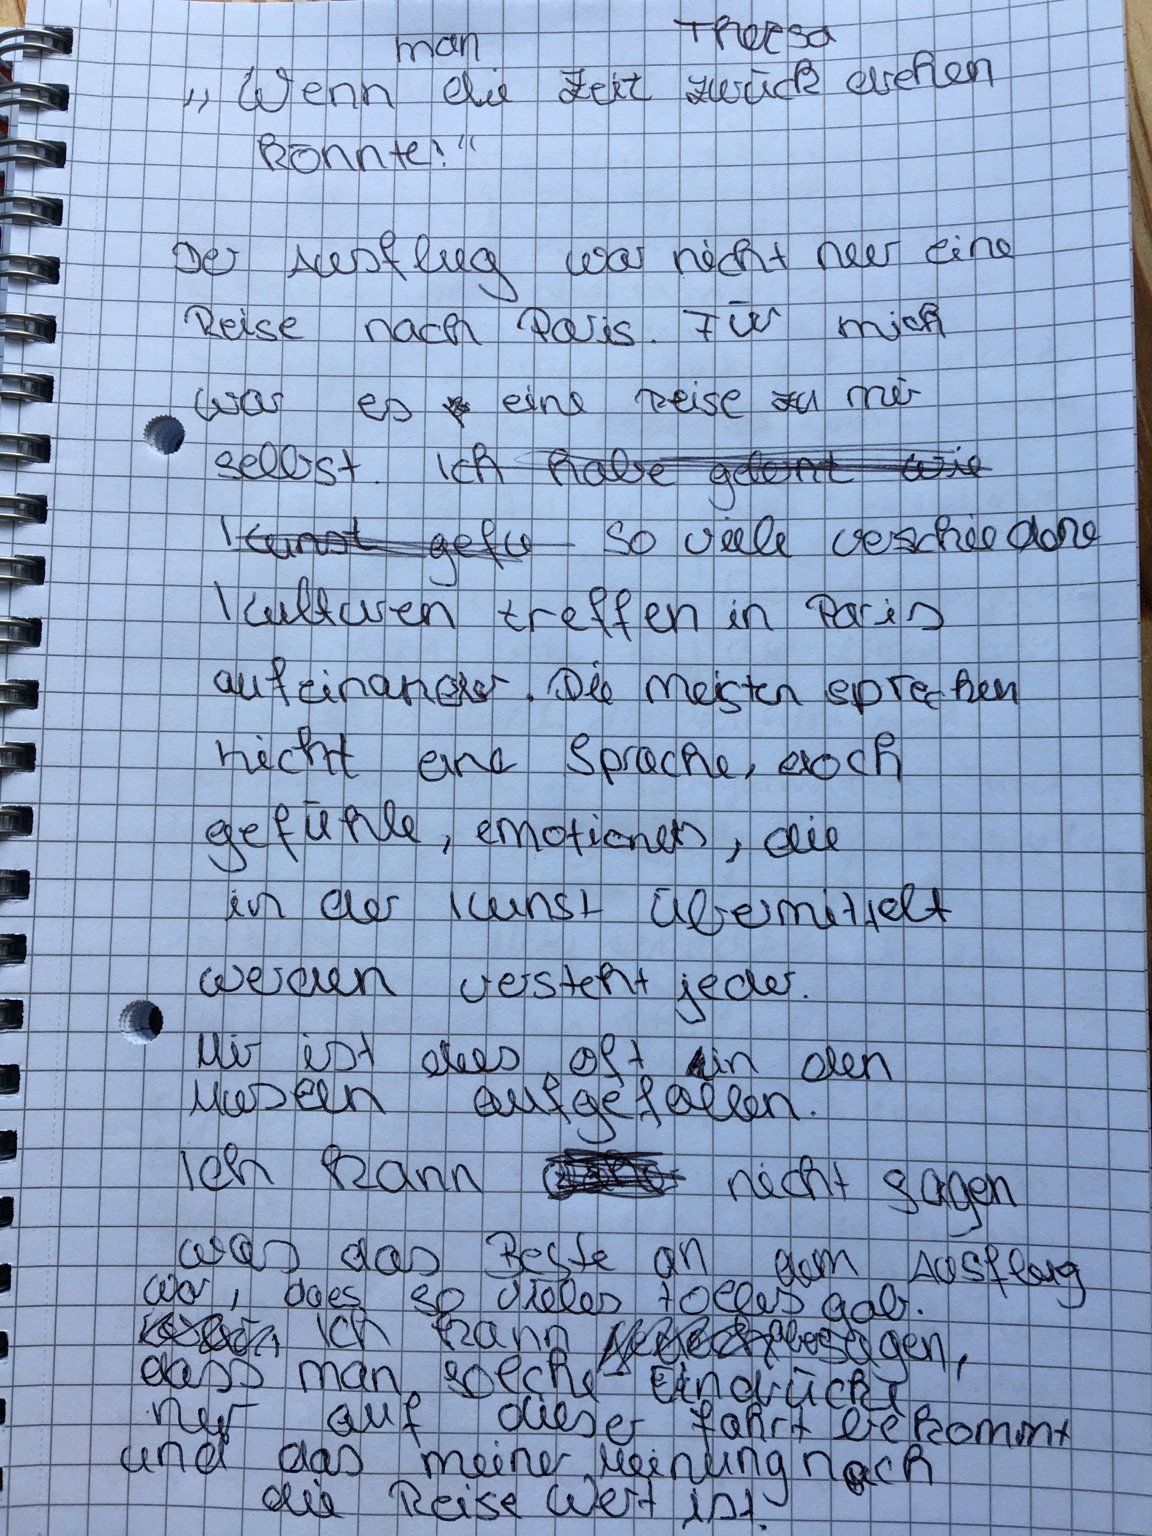 Theresa
man
„Wenn die Zeit zurück drehen
könnte!“
Der Ausflug war nicht nur eine
Reise nach Paris. Für mich
war es eine Reise zu mir
selbst. Ich habe gelernt wie
Kunst gefü so viele verschiedene
Kulturen treffen in Paris
aufeinander. Die meisten sprechen
nicht eine Sprache, doch
gefühle, emotionen, die
in der Kunst übermittelt
werden versteht jeder.
Mir ist dies oft in den
Museen aufgefallen.
Ich kann nicht sagen
was das Beste an dem Ausflug
war, da es so vieles tolles gab.
Ich kann sagen,
dass man solche Eindrücke
nur auf dieser fahrt bekommt
und das meiner Meinung nach
die Reise Wert ist.